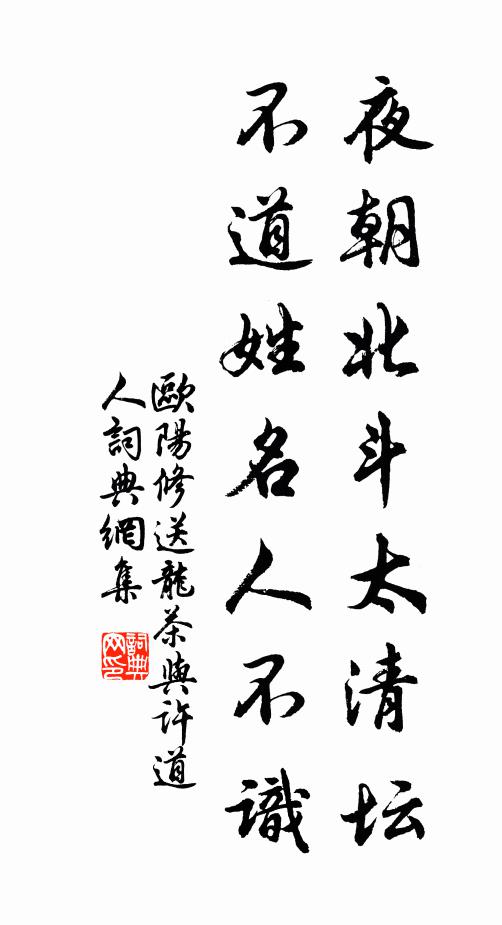 夜朝北斗太清坛
不道姓名人不識
歐陽修送龍茶與許道
人詞典網集
詞典
网印